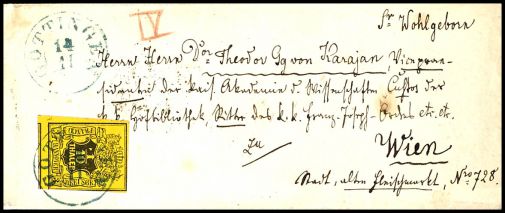 Sr Wohlgeborn
IV
GÖTTINGEN
14
11
Herrn Herrn Dor Theodor Gg von Karajan, Viceprae-
sidenten der kais. Akademie d. Wissenschaften Custos der
k. k. Hofbibliothek, Ritter des k. k. Franz-Joseph-Ordens etc. etc.
Zu
Wien
Stadt, alten Fleischmarkt, Nro 728.
10